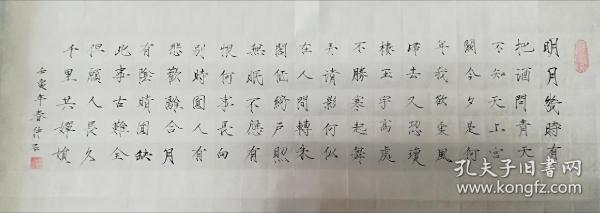 明月幾時有
把酒問青天
不知天上宮
闕今夕是何
年我欲乘風
歸去又恐瓊
樓玉宇高處
不勝寒起舞
弄清影何似
在人間轉朱
閣低綺戶照
無眠不應有
恨何事長向
別時圓人有
悲歡離合月
有陰晴圓缺
此事古難全
但願人長久
千里共嬋娟
壬寅年春
孔夫子旧书网
www.kongfz.com